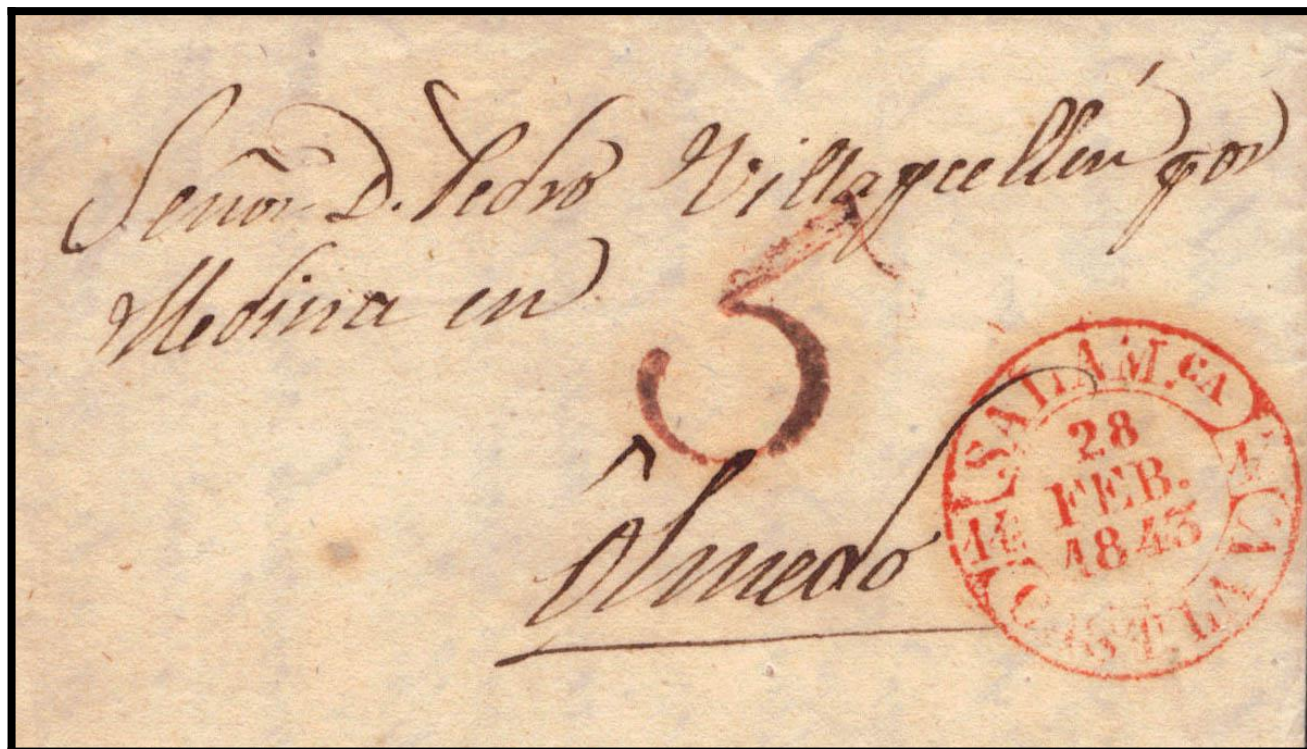 Señor D. Pedro Villaguillen por
Medina en
5
Olmedo
SALAM.CA
28
FEB.
1843
14
CAST. LA V.